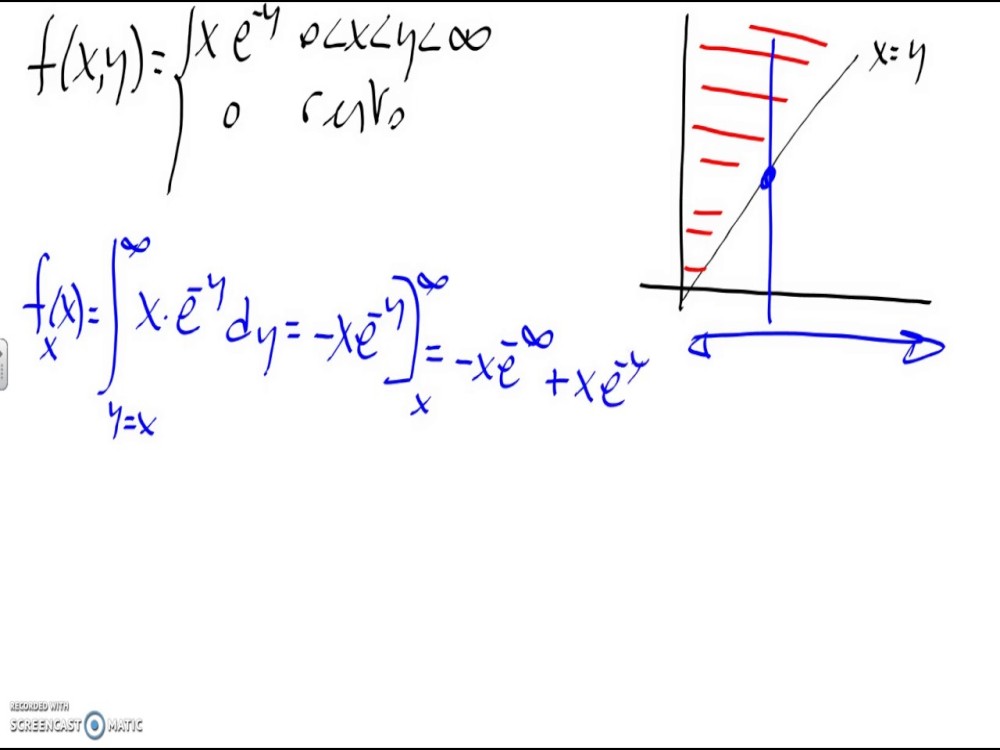 f(x,y) = { x e^{-y}   0<x<y<∞
0   resto
x = y
f_x(x) = ∫_{y=x}^{∞} x · e^{-y} dy = -x e^{-y} ]_{x}^{∞} = -x e^{-∞} + x e^{-y}
RECORDED WITH
SCREENCAST MATIC